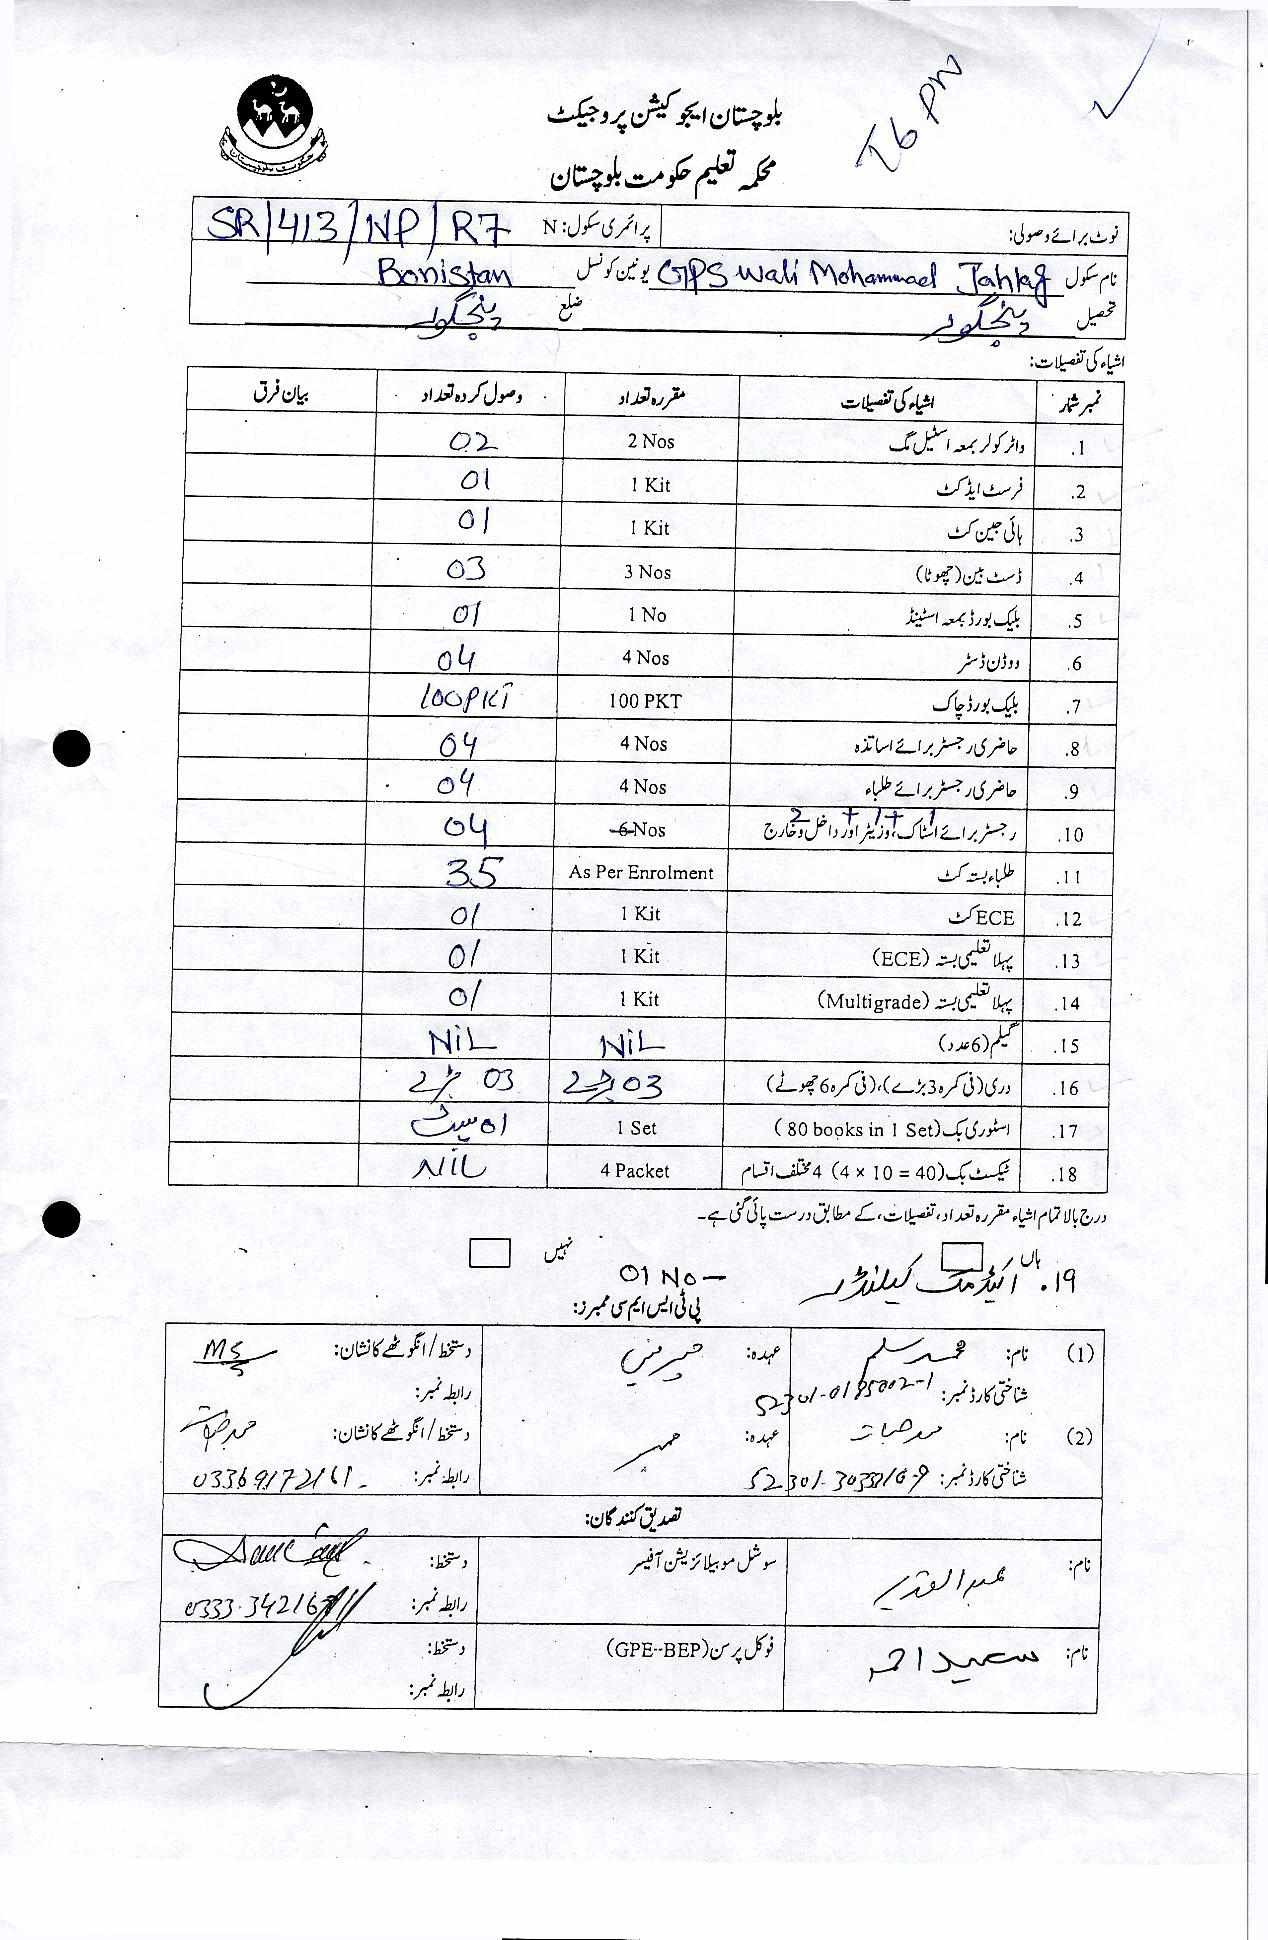 بلوچستان ایجوکیشن پروجیکٹ
محکمہ تعلیم حکومت بلوچستان
نوٹ برائے وصولی: پرائمری سکول: N SR/413/NP/R7
نام سکول GPS Wali Mohammad یونین کونسل Bonistan
تحصیل پنجگور ضلع پنجگور
اشیاء کی تفصیلات:
نمبر شمار اشیاء کی تفصیلات مقررہ تعداد وصول کردہ تعداد بیان فرق
1. واٹر کولر بمعہ اسٹیل مگ 2 Nos 02
2. فرسٹ ایڈ کٹ 1 Kit 01
3. ہائی جین کٹ 1 Kit 01
4. ڈسٹ بین (چھوٹا) 3 Nos 03
5. بلیک بورڈ بمعہ اسٹینڈ 1 No 01
6. ووڈن ڈسٹر 4 Nos 04
7. بلیک بورڈ چاک 100 PKT 100PKT
8. حاضری رجسٹر برائے اساتذہ 4 Nos 04
9. حاضری رجسٹر برائے طلباء 4 Nos 04
10. رجسٹر برائے اسٹاک، وزیٹر اور داخل و خارج 6 Nos 04
11. طلباء بستہ کٹ As Per Enrolment 35
12. ECE کٹ 1 Kit 01
13. پہلا تعلیمی بستہ (ECE) 1 Kit 01
14. پہلا تعلیمی بستہ (Multigrade) 1 Kit 01
15. گیم (6 عدد) NiL NiL
16. دری (فی کمرہ 3 بڑے)، (فی کمرہ 6 چھوٹے) 03 بڑے 03 بڑے
17. اسٹوری بک (80 books in 1 Set) 1 Set 01 سیٹ
18. ٹیکسٹ بک (4 × 10 = 40) 4 مختلف اقسام 4 Packet NiL
درج بالا تمام اشیاء مقررہ تعداد، تفصیلات، کے مطابق درست پائی گئی ہے۔
ہاں نہیں
۱۹. اکیڈمک کیلنڈر 01 No
پی ٹی ایس ایم سی ممبرز:
(1) نام: محمد سلیم عہدہ: چیئرمین دستخط/انگوٹھے کا نشان: MS
شناختی کارڈ نمبر: رابطہ نمبر:
(2) نام: عہدہ: ممبر دستخط/انگوٹھے کا نشان:
شناختی کارڈ نمبر: رابطہ نمبر: 03369172161
تصدیق کنندگان:
نام: عبدالقدیر سوشل موبیلائزیشن آفیسر دستخط:
رابطہ نمبر:
نام: سعید احمد فوکل پرسن (GPE--BEP) دستخط:
رابطہ نمبر: